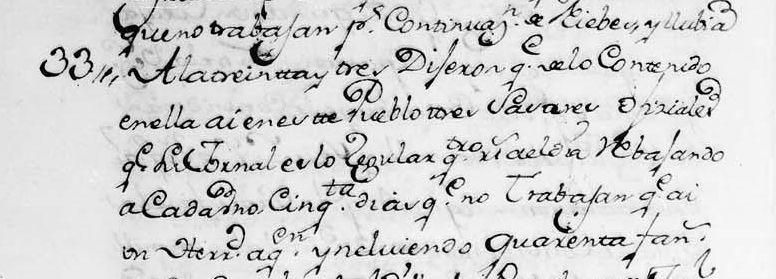 que no trabajan pr. Continuazn. de Niebes, y llubia
33. A la treintta y tres Dijeron qe. de lo Contenido
en ella ai en estte Pueblo tres Sastres ofizialed
qe. su Jornal es lo Regular qtro. rs. al dia Rebajando
a Cada Uno Cinqta. dias qe. no Trabajan qe. ai
un Herrd. aqn. yncluiendo quarenta fans.